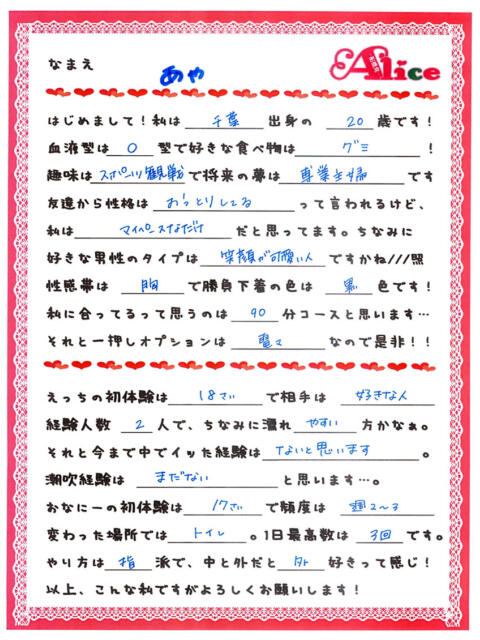 なまえ あや
Alice
はじめまして!私は 千葉 出身の 20 歳です!
血液型は O 型で好きな食べ物は グミ !
趣味は スポーツ観戦 で将来の夢は 専業主婦 です
友達から性格は おっとりしてる って言われるけど、
私は マイペースなだけ だと思ってます。ちなみに
好きな男性のタイプは 笑顔が可愛い人 ですかね///照
性感帯は 胸 で勝負下着の色は 黒 色です!
私に合ってるって思うのは 90 分コースと思います…
それと一押しオプションは 電マ なので是非!!
えっちの初体験は 18さい で相手は 好きな人
経験人数 2 人で、ちなみに濡れ やすい 方かなぁ。
それと今まで中でイッた経験は ないと思います 。
潮吹経験は まだない と思います…。
おなにーの初体験は 17さい で頻度は 週2〜3
変わった場所では トイレ 。1日最高数は 3回 です。
やり方は 指 派で、中と外だと 外 好きって感じ!
以上、こんな私ですがよろしくお願いします!